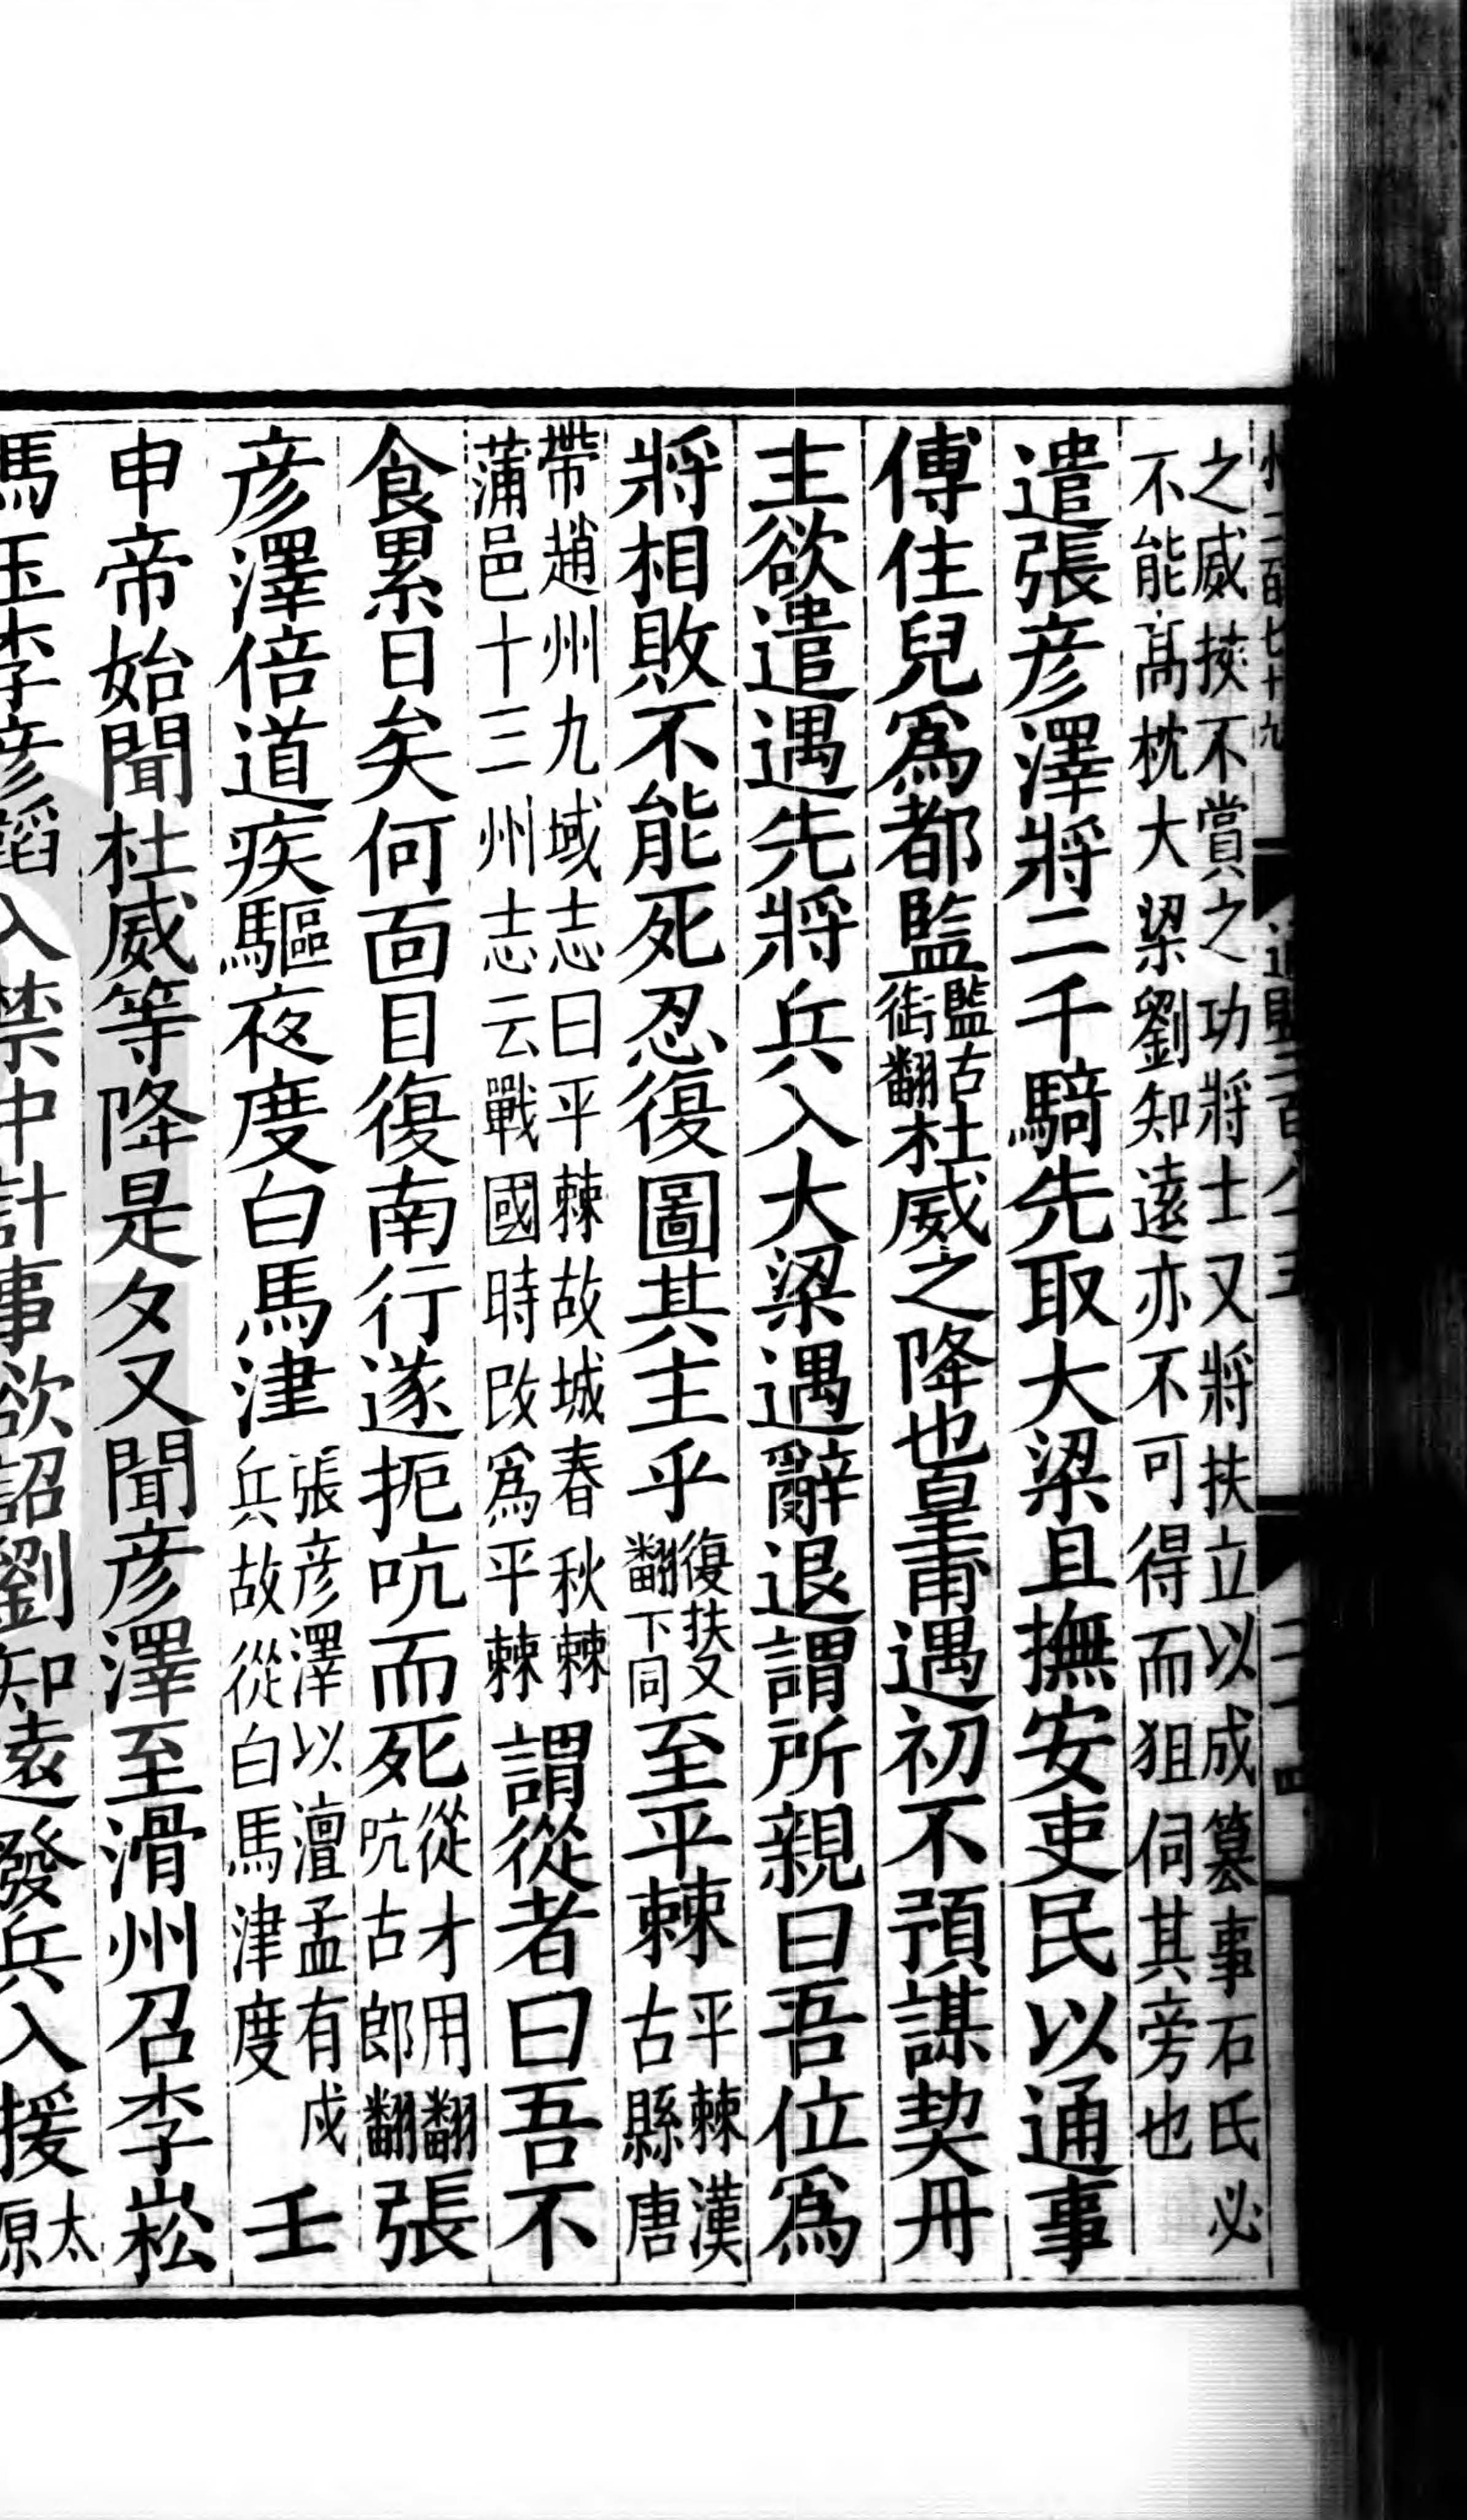 之威挾不賞之功將士又將扶立以成篡事石氏必
不能高枕大梁劉知遠亦不可得而狙伺其旁也
遣張彥澤將二千騎先取大梁且撫安吏民以通事
傅住兒爲都監監古銜翻杜威之降也皇甫遇初不預謀契丹
主欲遣遇先將兵入大梁遇辭退謂所親曰吾位爲
將相敗不能死忍復圖其主乎復扶又翻下同至平棘平棘漢古縣唐
帶趙州九域志曰平棘故城春秋棘
蒲邑十三州志云戰國時改爲平棘謂從者曰吾不
食累日矣何面目復南行遂扼吭而死從才用翻吭古郎翻張
彥澤倍道疾驅夜度白馬津張彥澤以澶孟有戍兵故從白馬津度壬
申帝始聞杜威等降是夕又聞彥澤至滑州召李崧
馮玉李彥韜入禁中計事欲詔劉知遠發兵入援太原